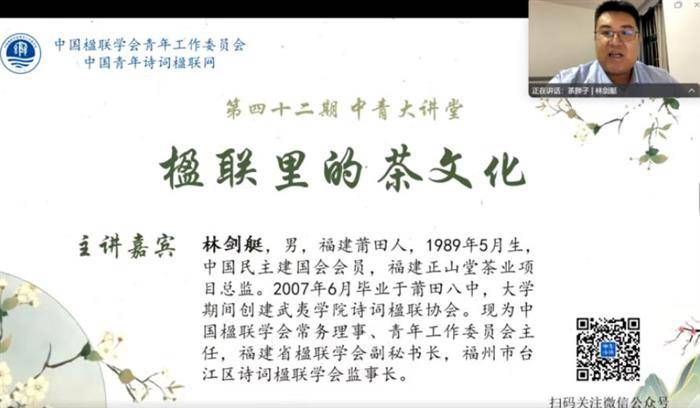 中国楹联学会青年工作委员会
中国青年诗词楹联网
正在讲话：茶胖子 | 林剑艇
第四十二期 中青大讲堂
楹联里的茶文化
主讲嘉宾
林剑艇，男，福建莆田人，1989年5月生，
中国民主建国会会员，福建正山堂茶业项
目总监。2007年6月毕业于莆田八中，大学
期间创建武夷学院诗词楹联协会。现为中
国楹联学会常务理事、青年工作委员会主
任，福建省楹联学会副秘书长，福州市台
江区诗词楹联学会监事长。
扫码关注微信公众号